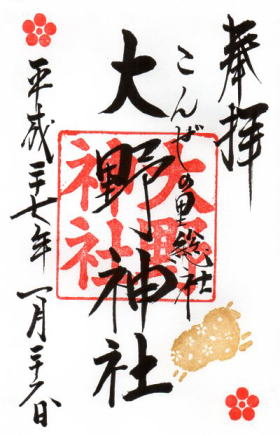 奉拝
こんぜの里総社
大野神社
大野
神社
平成二十七年一月二十六日